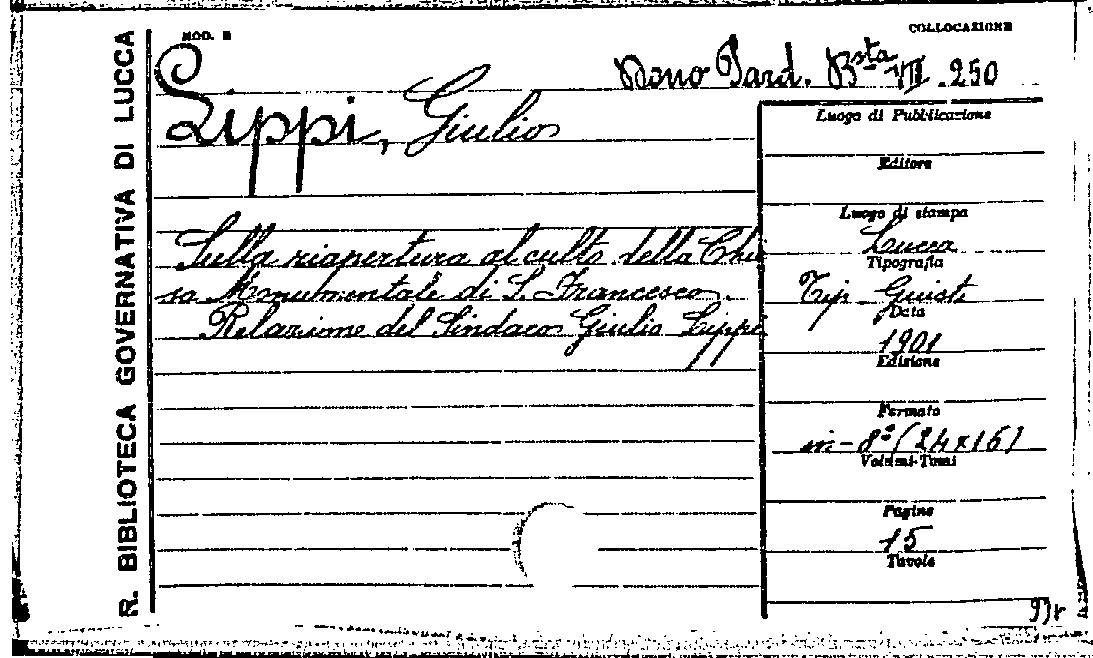 R. BIBLIOTECA GOVERNATIVA DI LUCCA
MOD. B
COLLOCAZIONE
Dono Pard. Bsta VIII. 250
Lippi, Giulio
Sulla riapertura al culto della Chie
sa Monumentale di S. Francesco.
Relazione del Sindaco Giulio Lippi
Luogo di Pubblicazione
Editore
Luogo di stampa
Lucca
Tipografia
Tip. Giusti
Data
1901
Edizione
Formato
in-8º (24x16)
Volumi-Tomi
Pagine
15
Tavole